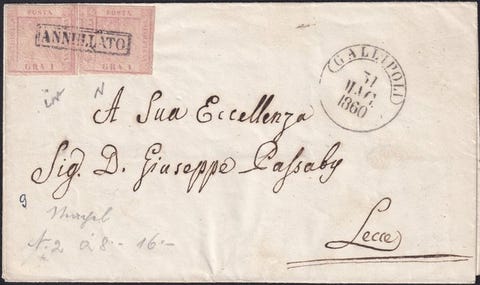 POSTA POSTA
ANNULLATO
GRA 1 GRA 1
GALLIPOLI
31
MAG.
1860
N
A Sua Eccellenza
Sig. D. Giuseppe Passaby
9
N. 2 à 8.- 16.-
Lecce